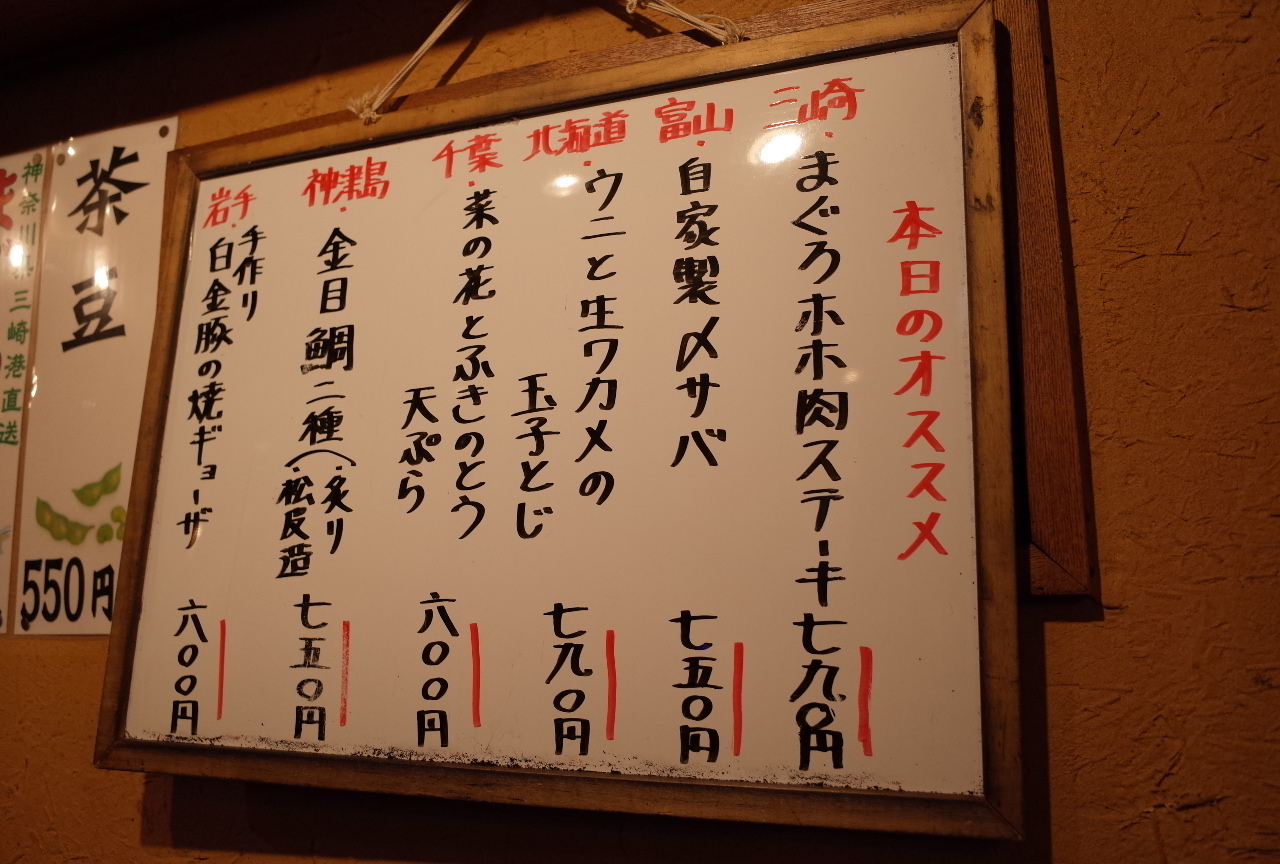 本日のオススメ
三崎・まぐろホホ肉ステーキ七九〇円
富山・自家製〆サバ 七五〇円
北海道・ウニと生ワカメの
玉子とじ 七九〇円
千葉・菜の花とふきのとう
天ぷら 六〇〇円
神津島・金目鯛二種(・炙り
・松皮造 七五〇円
岩手・手作り
白金豚の焼ギョーザ 六〇〇円
茶豆
550円
神奈川県三崎港直送